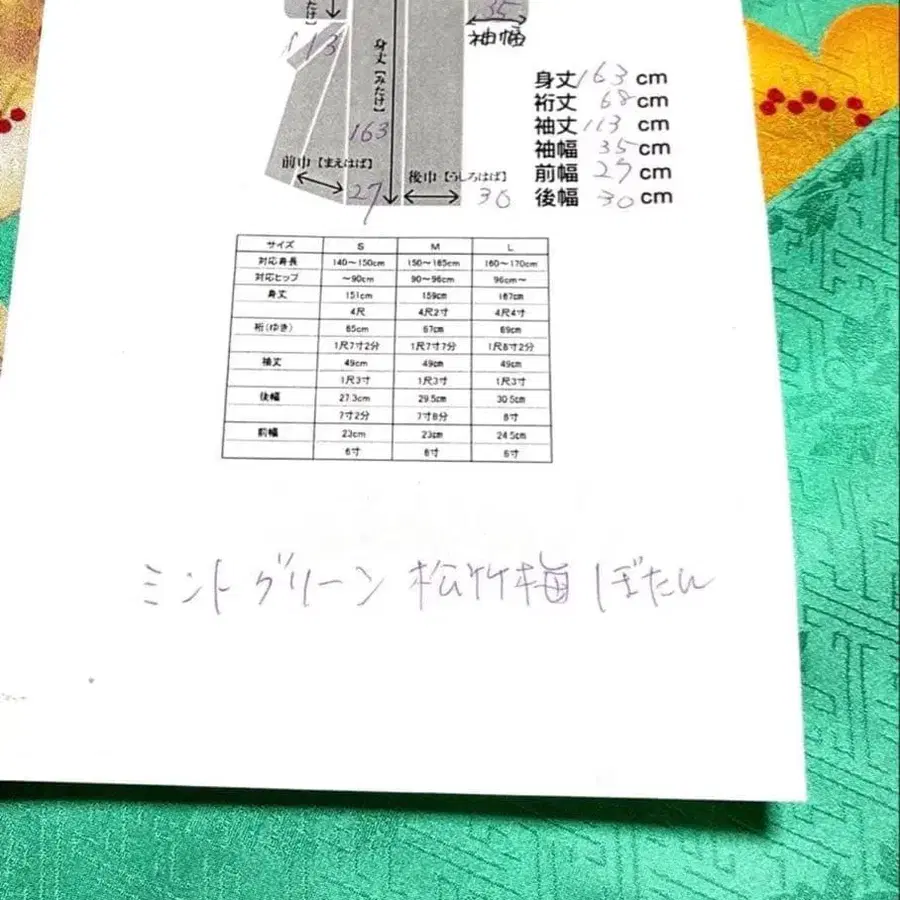 たけ】
113
35
袖幅
身丈【みたけ】
163
前巾【まえはば】
27
後巾【うしろはば】
30
身丈 163 cm
裄丈 68 cm
袖丈 113 cm
袖幅 35 cm
前幅 27 cm
後幅 30 cm
サイズ S M L
対応身長 140～150cm 150～165cm 160～170cm
対応ヒップ ～90cm 90～96cm 96cm～
身丈 151cm 159cm 167cm
4尺 4尺2寸 4尺4寸
裄(ゆき) 65cm 67cm 69cm
1尺7寸2分 1尺7寸7分 1尺8寸2分
袖丈 49cm 49cm 49cm
1尺3寸 1尺3寸 1尺3寸
後幅 27.3cm 29.5cm 30.5cm
7寸2分 7寸8分 8寸
前幅 23cm 23cm 24.5cm
6寸 6寸 6寸
ミントグリーン 松竹梅 ぼたん